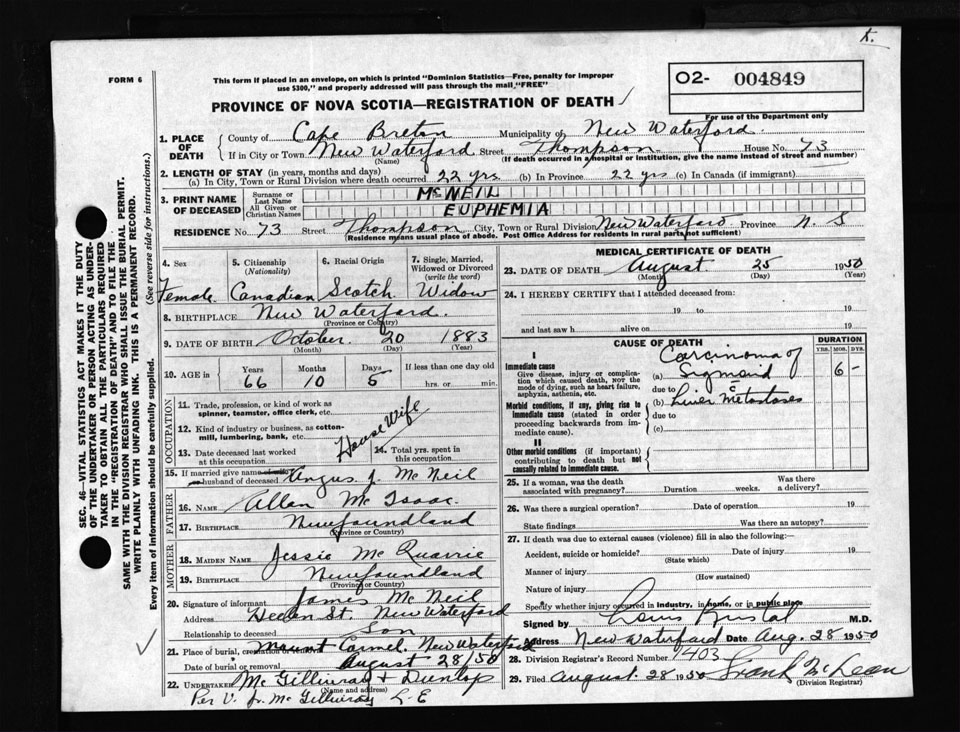 K.
FORM 6
This form if placed in an envelope, on which is printed "Dominion Statistics—Free, penalty for improper
use $300," and properly addressed will pass through the mail, "FREE"
O2- 004849
For use of the Department only
PROVINCE OF NOVA SCOTIA—REGISTRATION OF DEATH
1. PLACE OF DEATH
County of Cape Breton Municipality of New Waterford
If in City or Town New Waterford Street Thompson House No. 73
(Name) (If death occurred in a hospital or institution, give the name instead of street and number)
2. LENGTH OF STAY (in years, months and days)
(a) In City, Town or Rural Division where death occurred 22 yrs (b) In Province 22 yrs (c) In Canada (if immigrant)
3. PRINT NAME OF DECEASED
Surname or Last Name McNEIL
All Given or Christian Names EUPHEMIA
RESIDENCE No. 73 Street Thompson City, Town or Rural Division New Waterford Province N. S
(Residence means usual place of abode. Post Office Address for residents in rural parts not sufficient)
4. Sex
Female
5. Citizenship (Nationality)
Canadian
6. Racial Origin
Scotch
7. Single, Married, Widowed or Divorced (write the word)
Widow
8. BIRTHPLACE New Waterford.
(Province or Country)
9. DATE OF BIRTH October 20 1883
(Month) (Day) (Year)
10. AGE in Years Months Days If less than one day old
66 10 5 hrs. or min.
OCCUPATION
11. Trade, profession, or kind of work as
spinner, teamster, office clerk, etc.
12. Kind of industry or business, as cotton-
mill, lumbering, bank, etc.
House Wife
13. Date deceased last worked
at this occupation
14. Total yrs. spent in
this occupation
15. If married give name
husband of deceased Angus J. McNeil
FATHER
16. NAME Allan Mc Isaac.
17. BIRTHPLACE Newfoundland
(Province or Country)
MOTHER
18. MAIDEN NAME Jessie Mc Quarrie
19. BIRTHPLACE Newfoundland
(Province or Country)
20. Signature of informant James McNeil
Address St. New Waterford
Relationship to deceased Son
21. Place of burial, Mount Carmel. New Waterford
Date of burial or removal August 28/50
22. UNDERTAKER McGillivray & Dunlop
(Name and address)
Per V. Jr. McGillivray L-E
MEDICAL CERTIFICATE OF DEATH
23. DATE OF DEATH August 25 1950
(Month) (Day) (Year)
24. I HEREBY CERTIFY that I attended deceased from:
19 to 19
and last saw h alive on 19
CAUSE OF DEATH
DURATION
YRS. MOS. DYS.
I
Immediate cause
Give disease, injury or complica-
tion which caused death, NOR the
mode of dying, such as heart failure,
asphyxia, asthenia, etc.
(a) Carcinoma of Sigmoid 6 -
due to c̄
Morbid conditions, if any, giving rise to
immediate cause (stated in order
proceeding backwards from im-
mediate cause).
(b) Liver Metastases
due to
(c)
II
Other morbid conditions (if important)
contributing to death but not
causally related to immediate cause.
25. If a woman, was the death
associated with pregnancy? Duration weeks. Was there
a delivery?
26. Was there a surgical operation? Date of operation 19
State findings Was there an autopsy?
27. If death was due to external causes (violence) fill in also the following:—
Accident, suicide or homicide? Date of injury 19
(State which)
Manner of injury
(How sustained)
Nature of injury
Specify whether injury occurred in industry, in home, or in public place
Signed by Louis M.D.
Address New Waterford Date Aug. 28 1950
28. Division Registrar's Record Number 1403
29. Filed August 28 1950 Frank McLean
(Division Registrar)
SEC. 46—VITAL STATISTICS ACT MAKES IT THE DUTY
OF THE UNDERTAKER OR PERSON ACTING AS UNDER-
TAKER TO OBTAIN ALL THE PARTICULARS REQUIRED
IN THE "REGISTRATION OF DEATH" AND TO FILE THE
SAME WITH THE DIVISION REGISTRAR WHO SHALL ISSUE THE BURIAL PERMIT.
WRITE PLAINLY WITH UNFADING INK. THIS IS A PERMANENT RECORD.
Every item of information should be carefully supplied. (See reverse side for instructions.)